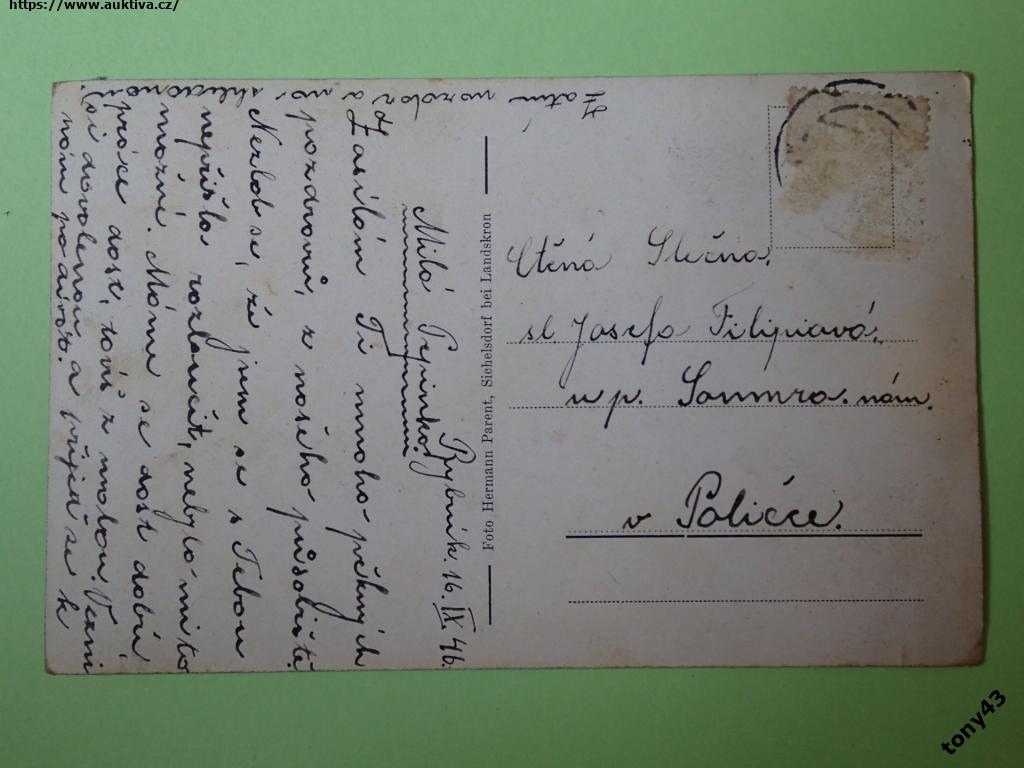 https://www.auktiva.cz/
Rybník. 16. IX 46.
Milá Pepinko!
Zasílám Ti mnoho pěkných
pozdravů, z našeho působiště.
Nezlob se, že jsem se s Tebou
nepřišla rozloučit, nebylo mi to
možné. Máme se dost dobře
práce dost, továr z malou. Vezmi
si dovolenou a přijeď se k
nám podívat.
Zatím nazdar a na shledanou
Foto Hermann Parent, Sichelsdorf bei Landskron
Ctěná Slečna,
sl. Josefa Filipiová,
u p. Sommra. nám.
v Poličce.
tony43